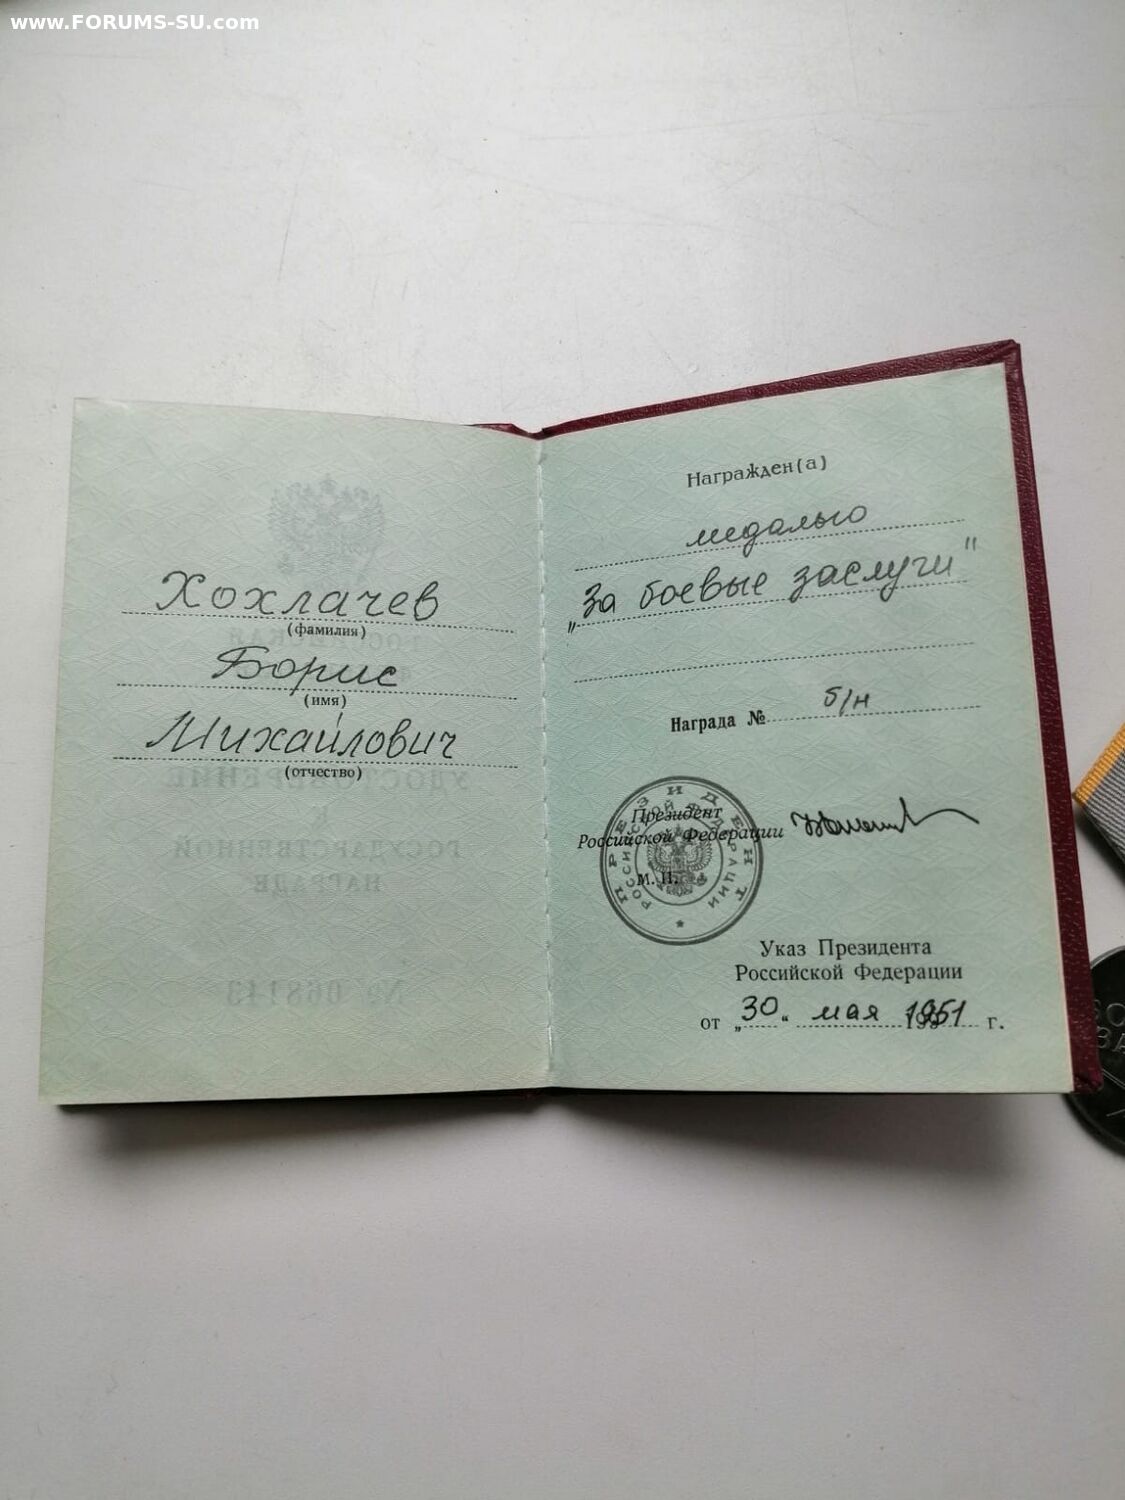 www.FORUMS-SU.com
Хохлачев
(фамилия)
Борис
(имя)
Михайлович
(отчество)
УДОСТОВЕРЕНИЕ
К
ГОСУДАРСТВЕННОЙ
НАГРАДЕ
№ 068143
Награжден(а)
медалью
„За боевые заслуги"
Награда № б/н
Президент
Российской Федерации
М. П.
ПРЕЗИДЕНТ
РОССИЙСКОЙ ФЕДЕРАЦИИ
Указ Президента
Российской Федерации
от „30“ мая 1951 г.